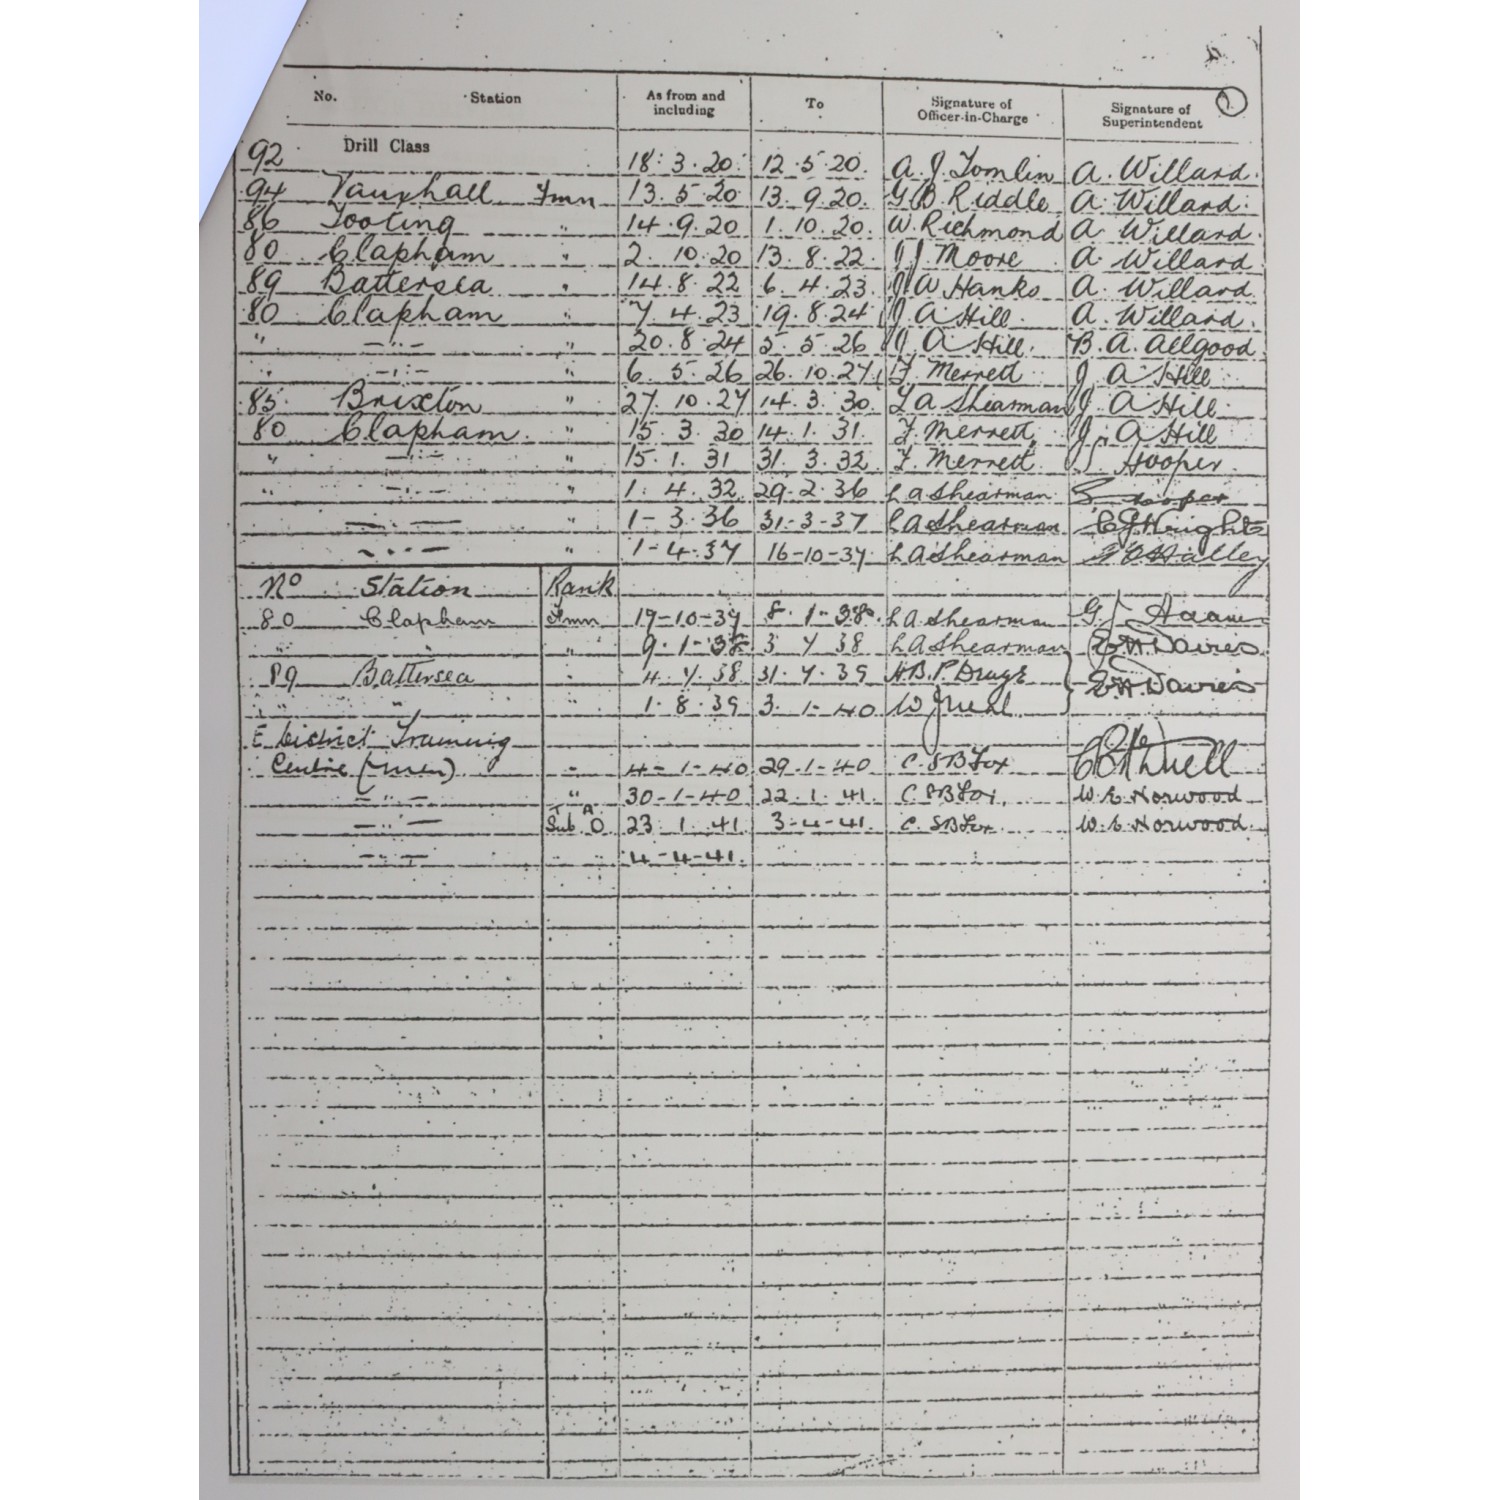 No. Station As from and including To Signature of Officer-in-Charge Signature of Superintendent
92 Drill Class 18. 3. 20. 12. 5. 20. A. J. Tomlin A. Willard.
94 Vauxhall Fmn 13. 5. 20 13. 9. 20. G B Riddle A. Willard.
86 Tooting " 14. 9. 20 1. 10. 20. W. Richmond A. Willard.
80 Clapham " 2. 10. 20 13. 8. 22. J J Moore A. Willard
89 Battersea " 14. 8. 22 6. 4. 23. J W Hanks A. Willard
80 Clapham " 7. 4. 23 19. 8. 24 J A Hill. A. Willard.
" —"— " 20. 8. 24 5. 5. 26 J A Hill. B. A. Allgood
" —"— " 6. 5. 26 26. 10. 27 F. Merrett J A Hill
85 Brixton " 27. 10. 27 14. 3. 30. L A Shearman J. A Hill.
80 Clapham. " 15. 3. 30 14. 1. 31. F. Merrett, J. A Hill
" —"— " 15. 1. 31 31. 3. 32. F. Merrett. S. Hooper.
" —"— " 1. 4. 32. 29. 2 36 L A Shearman S Hooper
—"— " 1-3.36 31-3-37 L A Shearman
—"— " 1-4.37 16-10-37. L A Shearman
No Station Rank
80 Clapham Fmn 19-10-37 8. 1-38. L A Shearman
" " 9. 1-38 3 7 38 L A Shearman E H Davies
89 Battersea " 4. 7. 38 31. 7. 39 H. B. P. E H Davies
" " " 1. 8. 39 3. 1-40 W
E District Training
Centre (Men) " 4-1-40 29.1-40 C. S B Fox
—"— " 30-1-40 22. 1. 41. C S B Fox. W. E Norwood
—"— T A Sub. O. 23. 1. 41. 3-4-41. C. S B Fox W. E Norwood.
—"— " " 4-4-41.